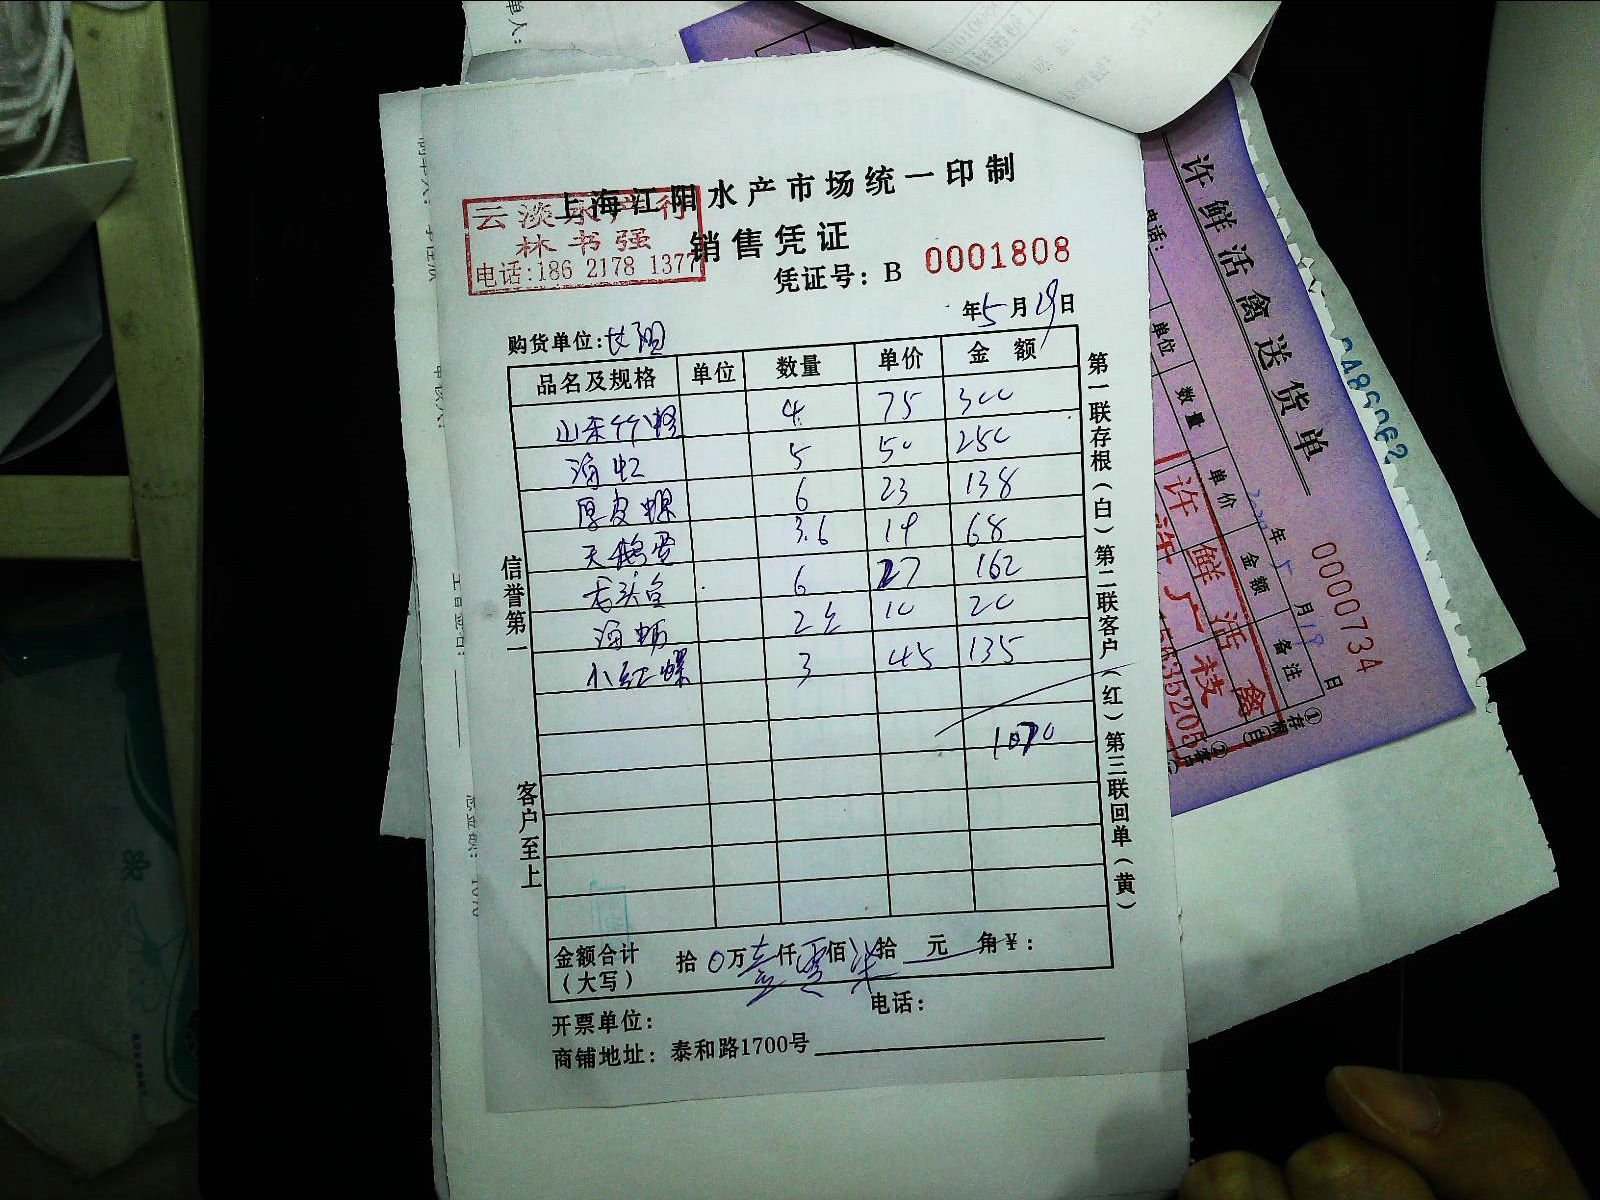 上海江阳水产市场统一印制
云淡水产行
林书强
电话:186 2178 1377
销售凭证
凭证号: B 0001808
年5月19日
购货单位:长阳
品名及规格 单位 数量 单价 金额
山东竹蛏 4 75 300
海虹 5 50 250
厚皮螺 6 23 138
天鹅蛋 3.6 19 68
老头鱼 6 27 162
海蛎 2 10 20
小红螺 3 45 135
1070
信誉第一 客户至上
第一联存根(白)第二联客户(红)第三联回单(黄)
金额合计(大写) 拾0万壹仟零佰柒拾 元 角¥:
开票单位: 电话:
商铺地址: 泰和路1700号
许鲜活禽送货单
0000734
电话:
年5月18日
单位 数量 单价 金额 备注
许鲜活禽
单人: